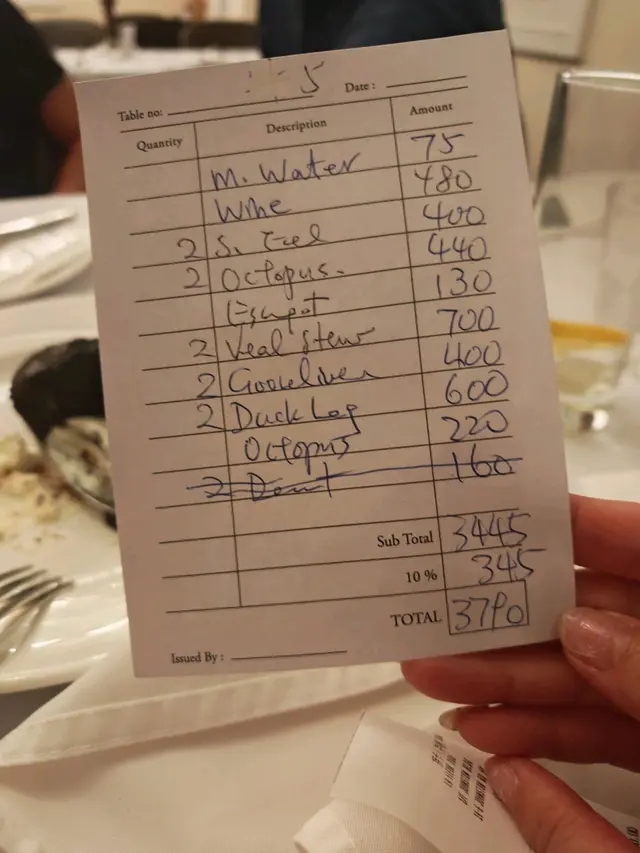 Table no: 5 Date :
Quantity Description Amount
M. Water 75
Wine 480
2 S. Eel 400
2 Octopus. 440
130
2 Veal Stew 700
2 Gooseliver 400
2 Duck Leg 600
Octopus 220
2 160
Sub Total 3445
10 % 345
TOTAL 3790
Issued By :